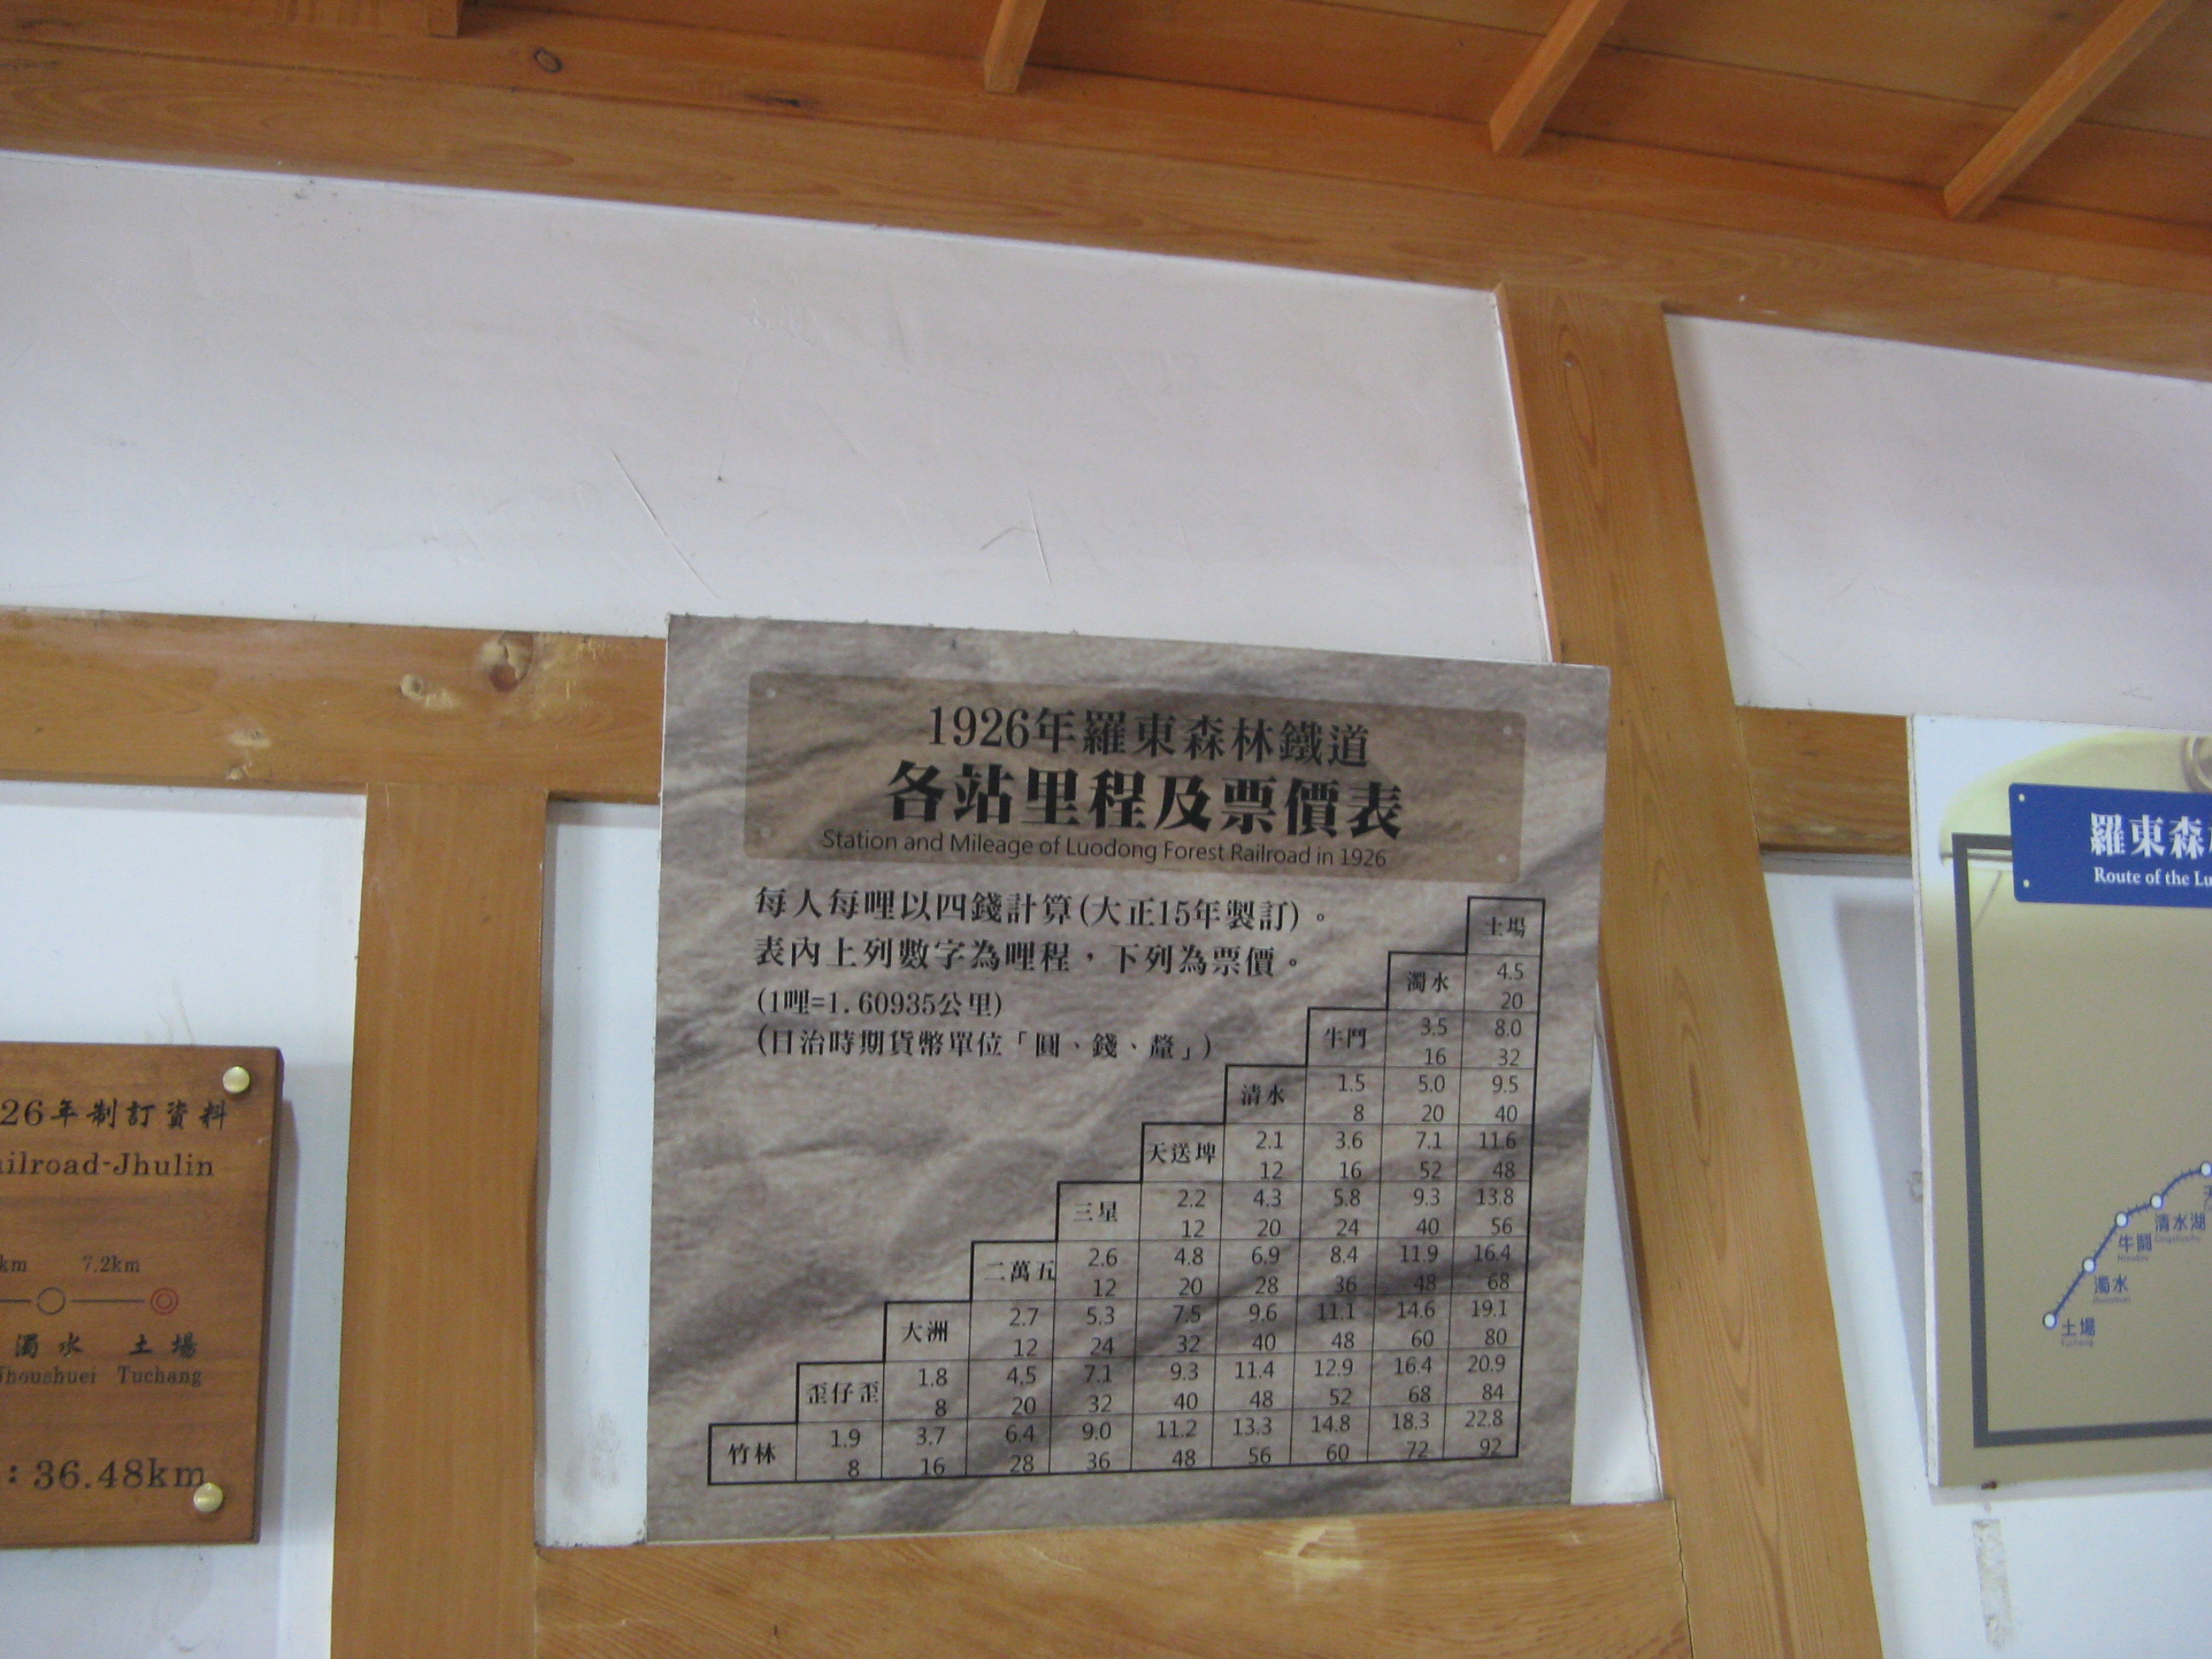 1926年羅東森林鐵道
各站里程及票價表
Station and Mileage of Luodong Forest Railroad in 1926
每人每哩以四錢計算(大正15年製訂)。
表內上列數字為哩程，下列為票價。
(1哩=1.60935公里)
(日治時期貨幣單位「圓、錢、釐」)
土場
濁水 4.5
20
牛鬥 3.5 8.0
16 32
清水 1.5 5.0 9.5
8 20 40
天送埤 2.1 3.6 7.1 11.6
12 16 52 48
三星 2.2 4.3 5.8 9.3 13.8
12 20 24 40 56
二萬五 2.6 4.8 6.9 8.4 11.9 16.4
12 20 28 36 48 68
大洲 2.7 5.3 7.5 9.6 11.1 14.6 19.1
12 24 32 40 48 60 80
歪仔歪 1.8 4.5 7.1 9.3 11.4 12.9 16.4 20.9
8 20 32 40 48 52 68 84
竹林 1.9 3.7 6.4 9.0 11.2 13.3 14.8 18.3 22.8
8 16 28 36 48 56 60 72 92
26年制訂資料
ilroad-Jhulin
km 7.2km
濁水 土場
houshuei Tuchang
: 36.48km
羅東森
Route of the Lu
清水湖
牛鬪
濁水
土場
Tuchang